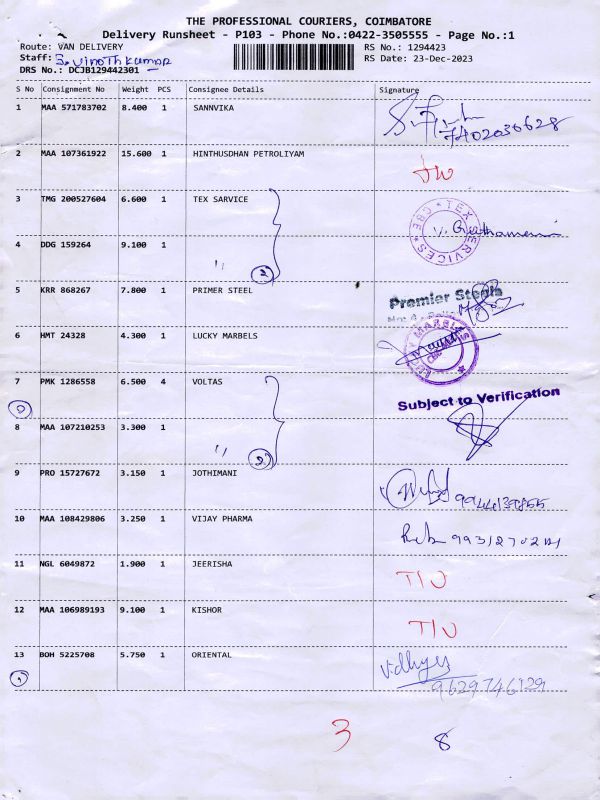 THE PROFESSIONAL COURIERS, COIMBATORE
Delivery Runsheet - P103 - Phone No.:0422-3505555 - Page No.:1
Route: VAN DELIVERY RS No.: 1294423
Staff: S. Vinothkumar RS Date: 23-Dec-2023
DRS No.: DCJB129442301
S No Consignment No Weight PCS Consignee Details Signature
1 MAA 571783702 8.400 1 SANNVIKA
2 MAA 107361922 15.600 1 HINTHUSDHAN PETROLIYAM
3 TMG 200527604 6.600 1 TEX SARVICE
TEX SERVICES CBE
4 DDG 159264 9.100 1 " 2
5 KRR 868267 7.800 1 PRIMER STEEL Premier Steels
6 HMT 24328 4.300 1 LUCKY MARBELS
LUCKY MARBELS
7 PMK 1286558 6.500 4 VOLTAS Subject to Verification
8 MAA 107210253 3.300 1 " 2
9 PRO 15727672 3.150 1 JOTHIMANI
10 MAA 108429806 3.250 1 VIJAY PHARMA
11 NGL 6049872 1.900 1 JEERISHA
12 MAA 106989193 9.100 1 KISHOR
13 BOH 5225708 5.750 1 ORIENTAL Vidhya
9629746129
3 8